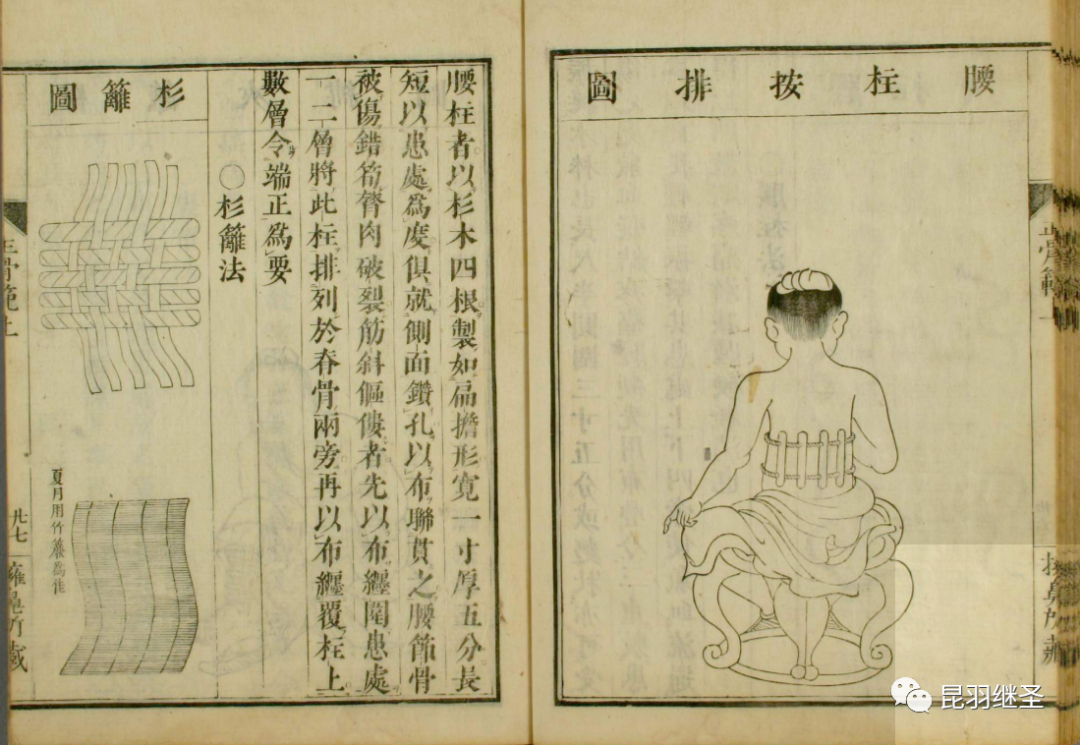 腰柱按排圖
腰柱者以杉木四根製如扁擔形寬一寸厚五分長
短以患處爲度俱就側面鑽孔以布聯貫之腰節骨
被傷錯筍膂肉破裂筋斜傴僂者先以布纏圍患處
一二層將此柱排列於脊骨兩旁再以布纏覆柱上
數層令端正爲要
○杉籬法
杉籬圖
夏月用竹簾爲佳
正骨範上
廿七
昆羽继圣